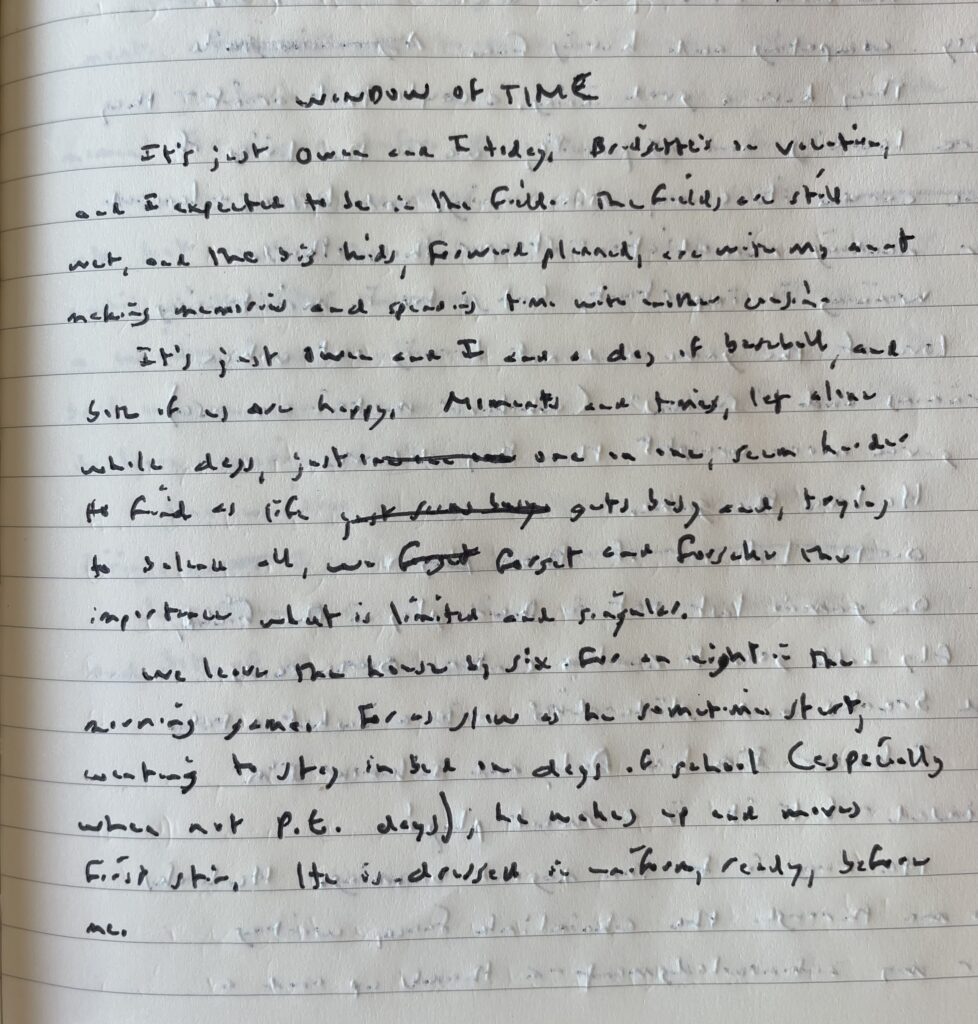 WINDOW OF TIME
It's just Owen and I today. Bridgette's on vacation,
and I expected to be in the field. The fields are still
wet, and the big kids, forward planned, are with my aunt
making memories and spending time with another cousin.
It's just Owen and I and a day of baseball, and
both of us are happy. Moments and times, let alone
whole days, just one on one, seem harder
to find as life just seems busy gets busy and, trying
to balance all, we forget forget and forsake the
importance what is limited and singular.
We leave the house by six for an eight in the
morning game. For as slow as he sometimes start,
wanting to stay in bed on days of school (especially
when not P.E. days), he wakes up and moves
first stir. He is dressed in uniform, ready, before
me.